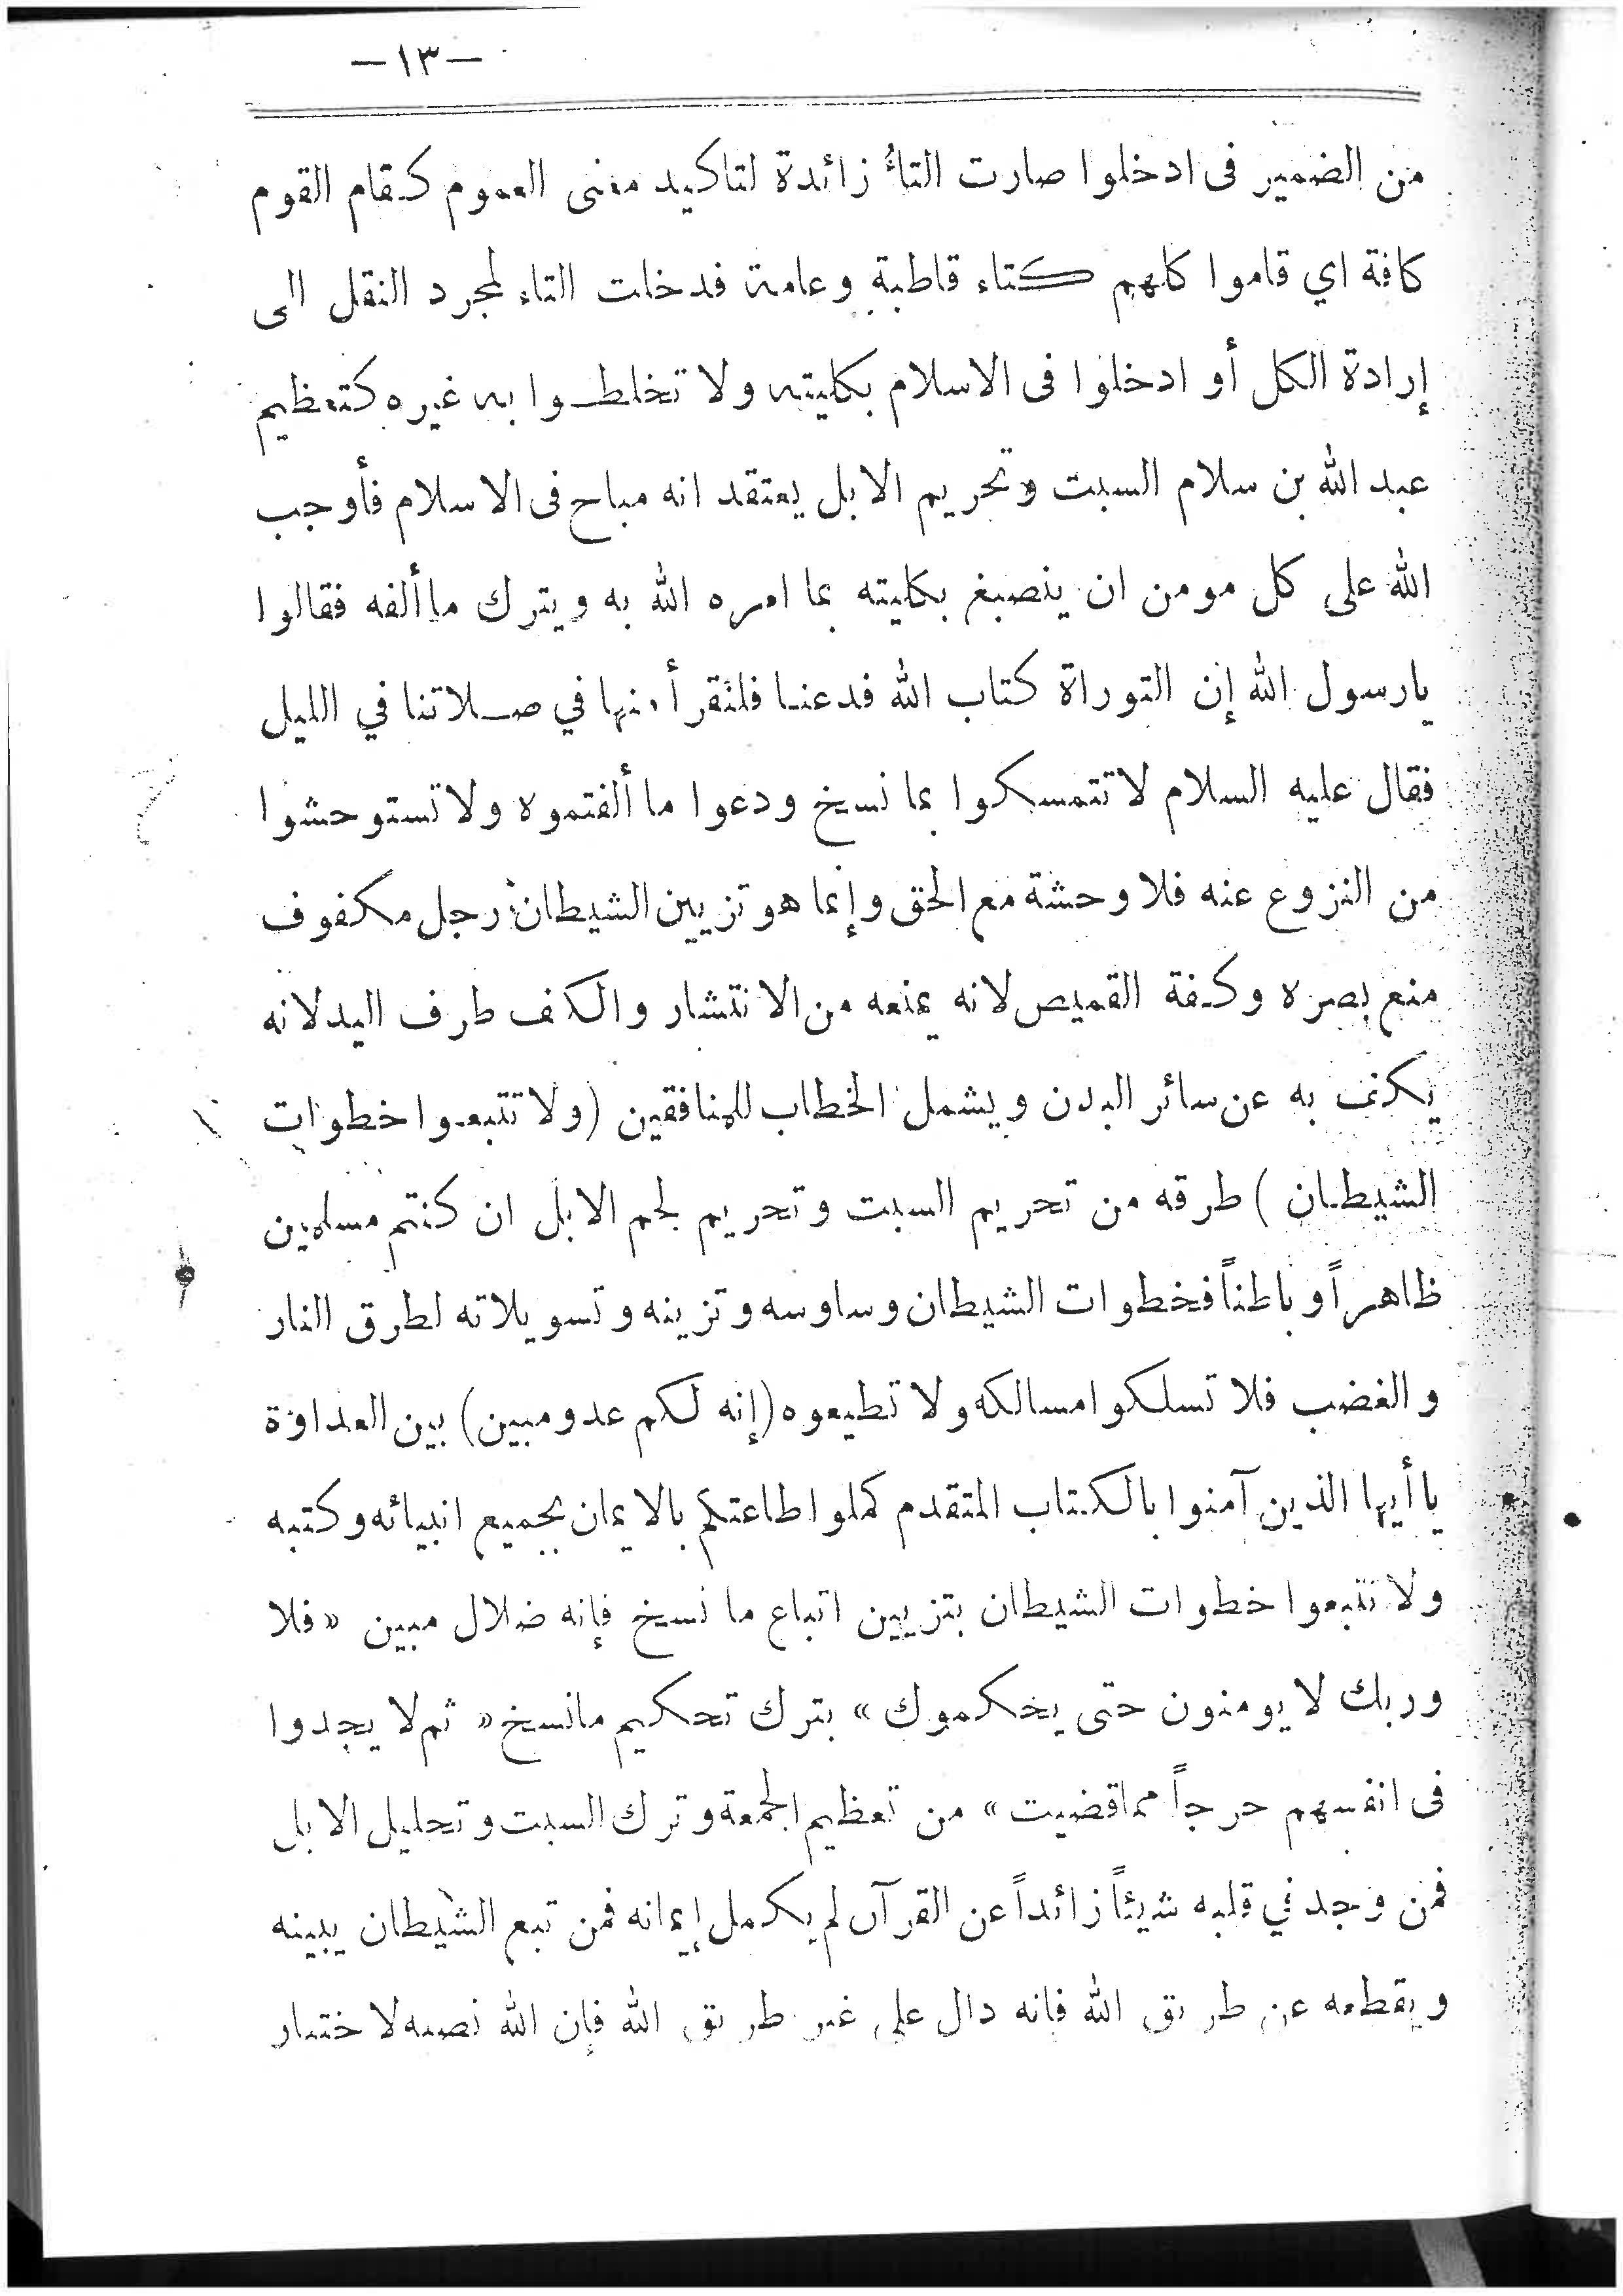 —١٣—
من الضمير فى ادخلوا صارت التاءُ زائدة لتاكيد معنى العموم كقام القوم
كافة اي قاموا كلهم كتاء قاطبة وعامة فدخلت التاء لمجرد النقل الى
إرادة الكل أو ادخلوا فى الاسلام بكليته ولا تخلطـوا به غيره كتعظيم
عبد الله بن سلام السبت وتحريم الابل يعتقد انه مباح فى الاسلام فأوجب
الله على كل مومن ان ينصبغ بكليته بما امره الله به ويترك ما ألفه فقالوا
يارسول الله إن التوراة كتاب الله فدعنا فلنقرأ منها في صـلاتنا في الليل
فقال عليه السلام لا تتمسكوا بما نسخ ودعوا ما ألفتموه ولا تستوحشوا
من النزوع عنه فلا وحشة مع الحق وإنما هو تزيين الشيطان: رجل مكفوف
منع بصره وكفة القميص لانه يمنعه من الانتشار والكف طرف اليد لانه
يكف به عن سائر البدن ويشمل الخطاب للمنافقين (ولا تتبعوا خطوات
الشيطان) طرقه من تحريم السبت وتحريم لحم الابل ان كنتم مسلمين
ظاهراً وباطناً فخطوات الشيطان وساوسه وتزينه وتسويلاته لطرق النار
والغضب فلا تسلكوا مسالكه ولا تطيعوه (إنه لكم عدو مبين) بين العداوة
يا أيها الذين آمنوا بالكتاب المتقدم كملوا طاعتكم بالايمان بجميع انبيائه وكتبه
ولا تتبعوا خطوات الشيطان بتزيين اتباع ما نسخ فإنه ضلال مبين «فلا
وربك لا يومنون حتى يحكموك» بترك تحكيم مانسخ «ثم لا يجدوا
فى انفسهم حرجاً مماقضيت» من تعظيم الجمعة وترك السبت وتحليل الابل
فمن وجد في قلبه شيئاً زائداً عن القرآن لم يكمل إيمانه فمن تبع الشيطان يبينه
ويقطعه عن طريق الله فانه دال على غير طريق الله فإن الله نصبه لاختبار